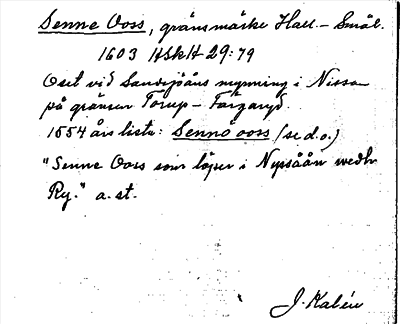 Senne Ooss, gränsmärke Hall.- Smål.
1603 HSkH 29:79
Oset vid Sandsjöåns mynning i Nissan
på gränsen Torup - Färgaryd.
1654 års lista: Sennö ooss (se d.o.)
"Senne Ooss som löper i Nyssåån wedh
Ry." a. st.
J. Kalén